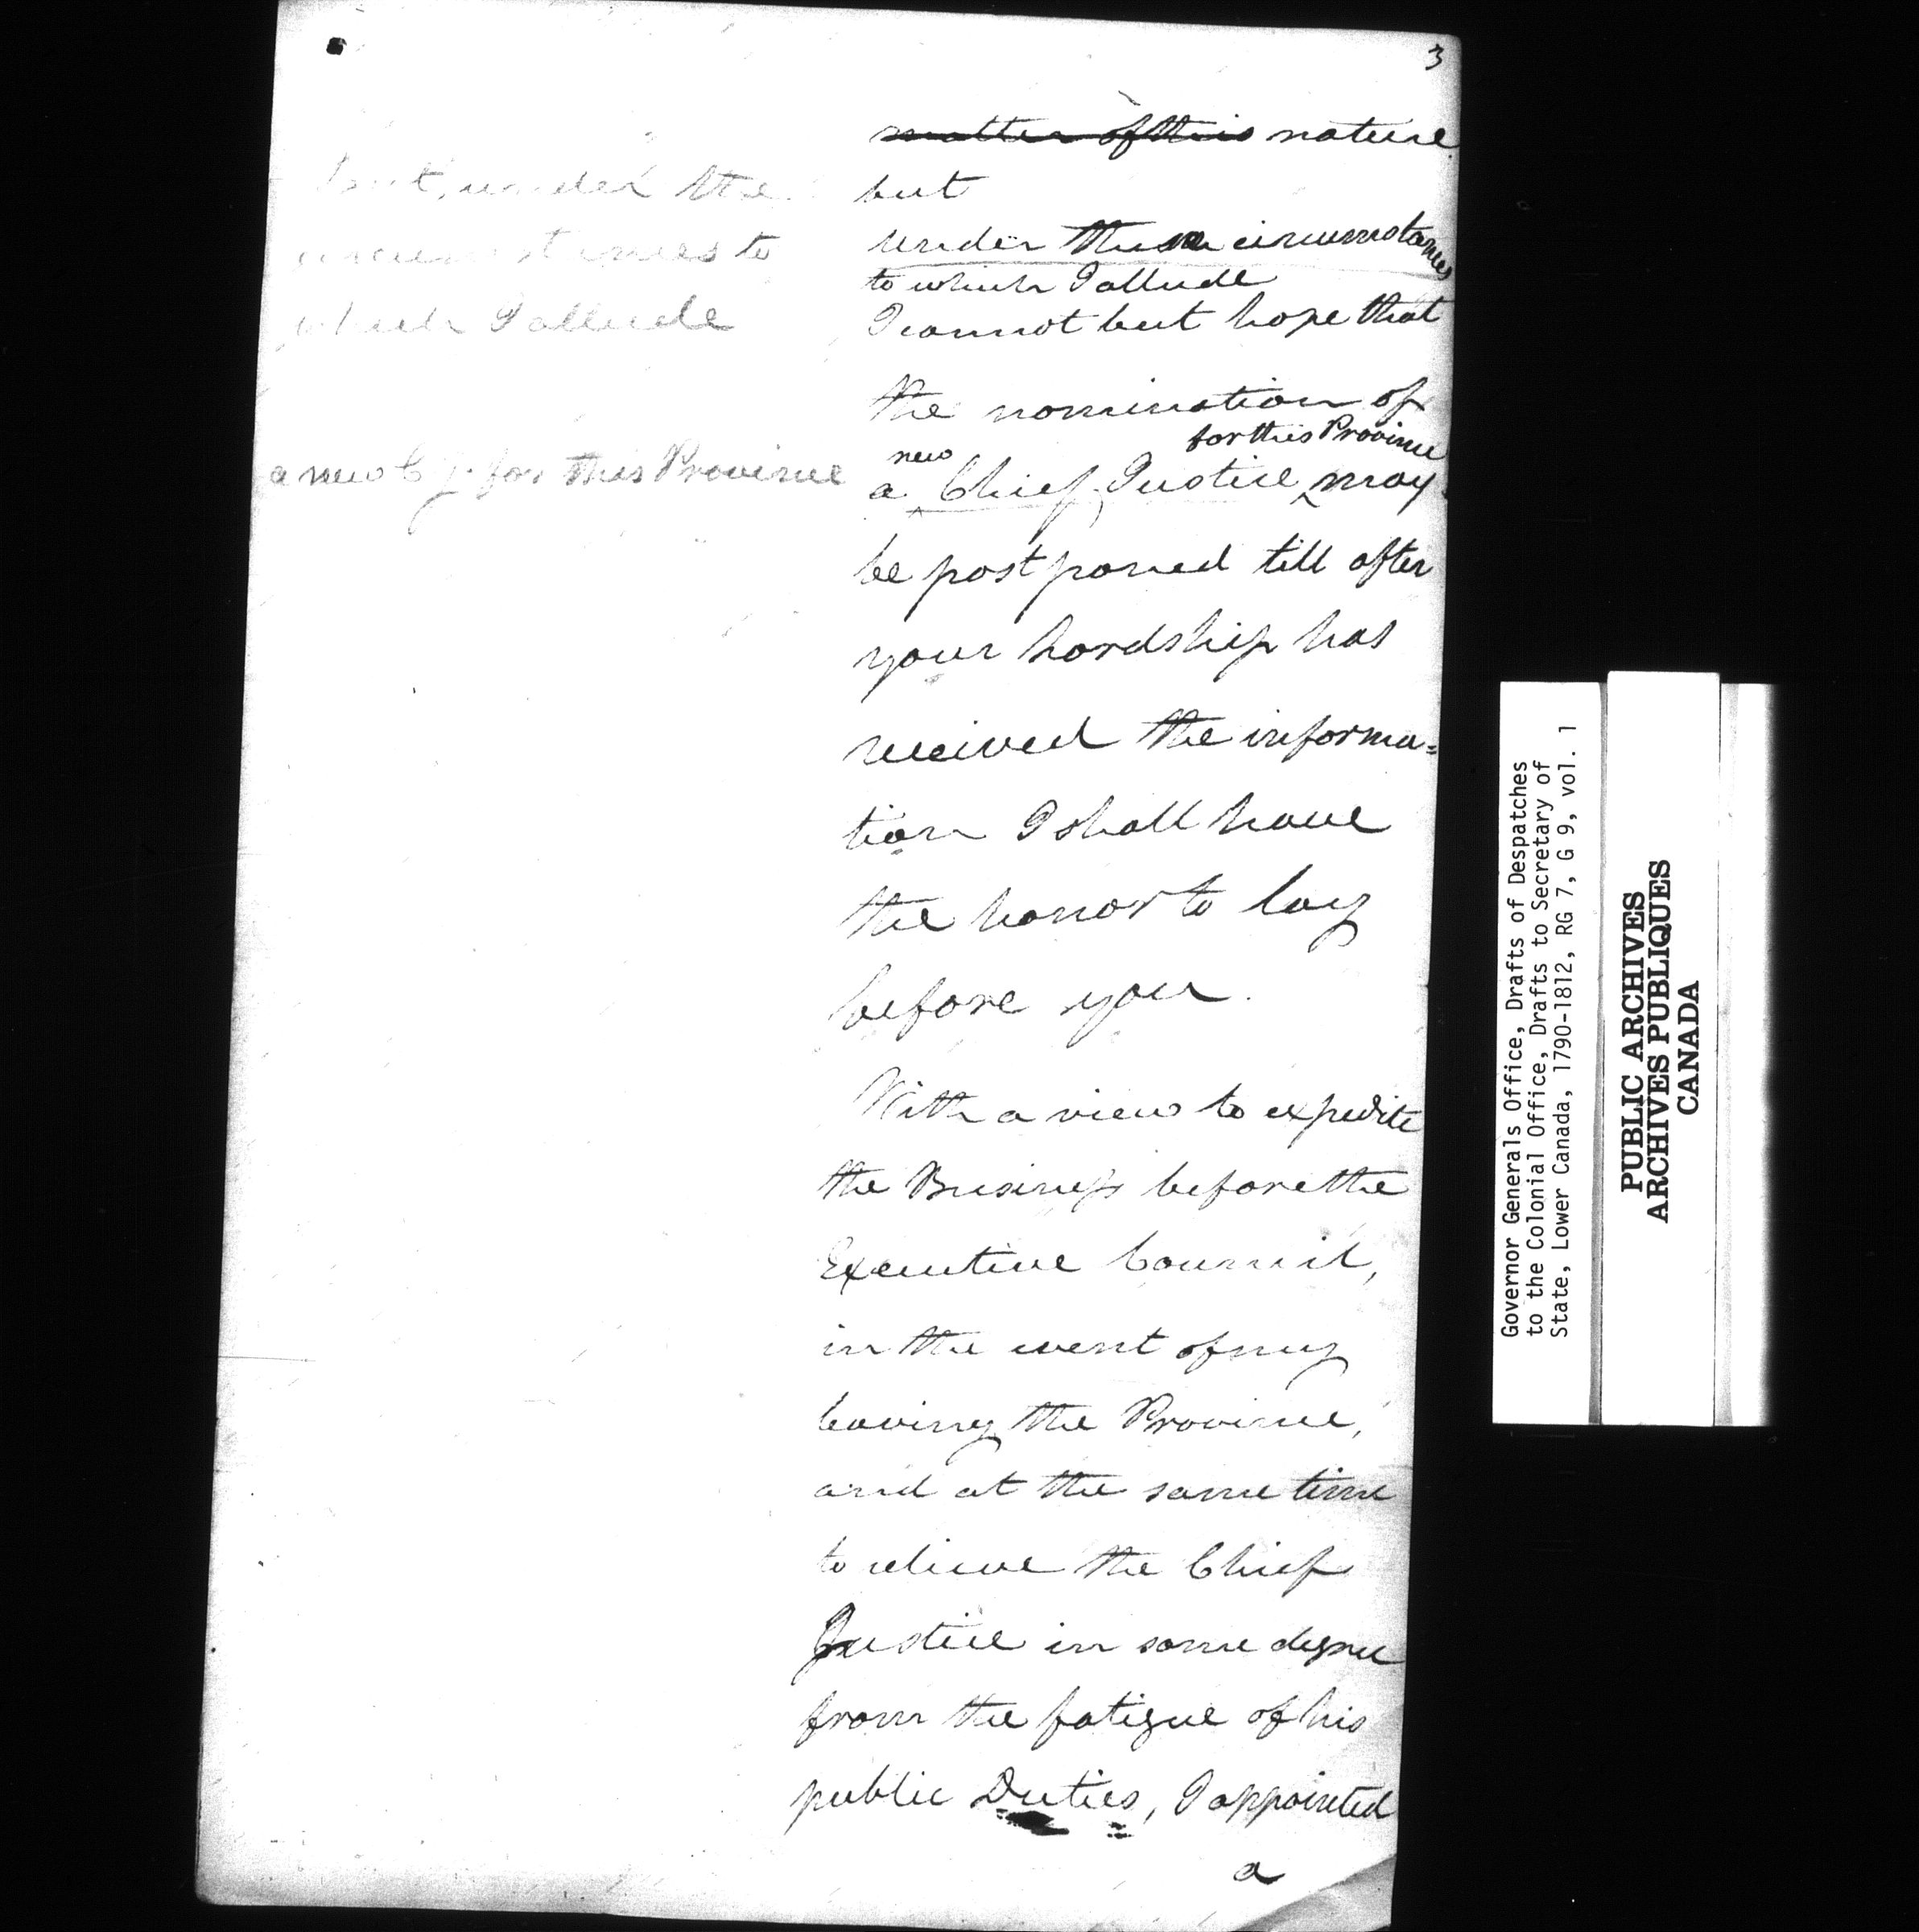 3
matter of this nature
but
under these circumstances
to which I allude
I cannot but hope that
the nomination of
new for this Province
a Chief Justice may
be postponed till after
your Lordship has
received the informa=
tion I shall have
the honor to lay
before you.
With a view to expedite
the Business before the
Executive Council,
in the event of my
leaving the Province,
and at the same time
to relieve the Chief
Justice in some degree
from the fatigue of his
public Duties, I appointed
a
but, under the
circumstances to
which I allude
a new C J. for this Province
Governor Generals Office, Drafts of Despatches
to the Colonial Office, Drafts to Secretary of
State, Lower Canada, 1790-1812, RG 7, G 9, vol. 1
PUBLIC ARCHIVES
ARCHIVES PUBLIQUES
CANADA